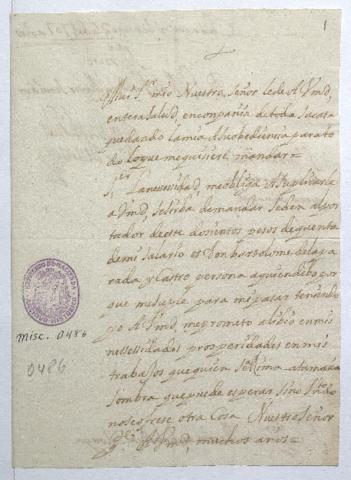 1
Muy Sr mio Nuestro Señor le de A Vmd,
entera salud, en compañia de toda su casa
quedando la mia A su obediencia para to
do lo que me quisiere mandar =
Sr La necesidad, me obliga A suplicarla
a Vmd, se sirba de mandar se den al por
tador de este docientos pesos de quenta
de mi salario es Don Bartolome de la pa
rada y Castro persona a quien debo por
que me suple para mi pasar teniendo
yo A Vmd, me prometo alibio en mis
nessesidades prosperidades en mis
trabajos que quien se Rima a tan buena
sombra que puede esperar sino
no se ofrese otra Cosa Nuestro Señor
Vmd, muchos años =
Misc. 0486
0486